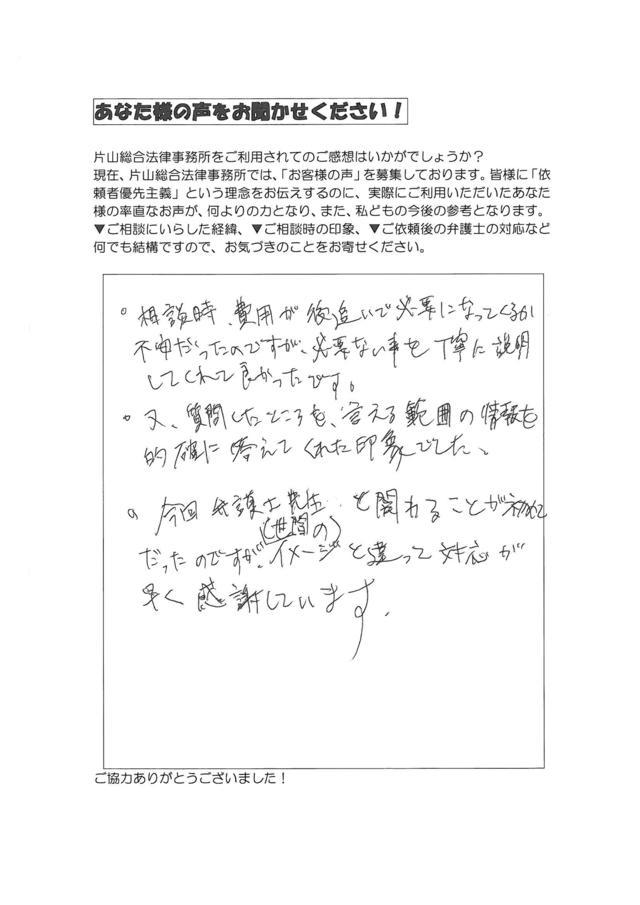 あなた様の声をお聞かせください！
片山総合法律事務所をご利用されてのご感想はいかがでしょうか？
現在、片山総合法律事務所では、「お客様の声」を募集しております。皆様に「依
頼者優先主義」という理念をお伝えするのに、実際にご利用いただいたあなた
様の率直なお声が、何よりの力となり、また、私どもの今後の参考となります。
▼ご相談にいらした経緯、▼ご相談時の印象、▼ご依頼後の弁護士の対応など
何でも結構ですので、お気づきのことをお寄せください。
。相談時、費用が後追いで必要になってくるか
不安だったのですが、必要ない事も丁寧に説明
してくれて良かったです。
。又、質問したところを、言える範囲の情報を
的確に答えてくれた印象でした。
。今回弁護士先生と関わることが初めて
(世間の)
だったのですが、イメージと違って対応が
早く感謝しています。
ご協力ありがとうございました！